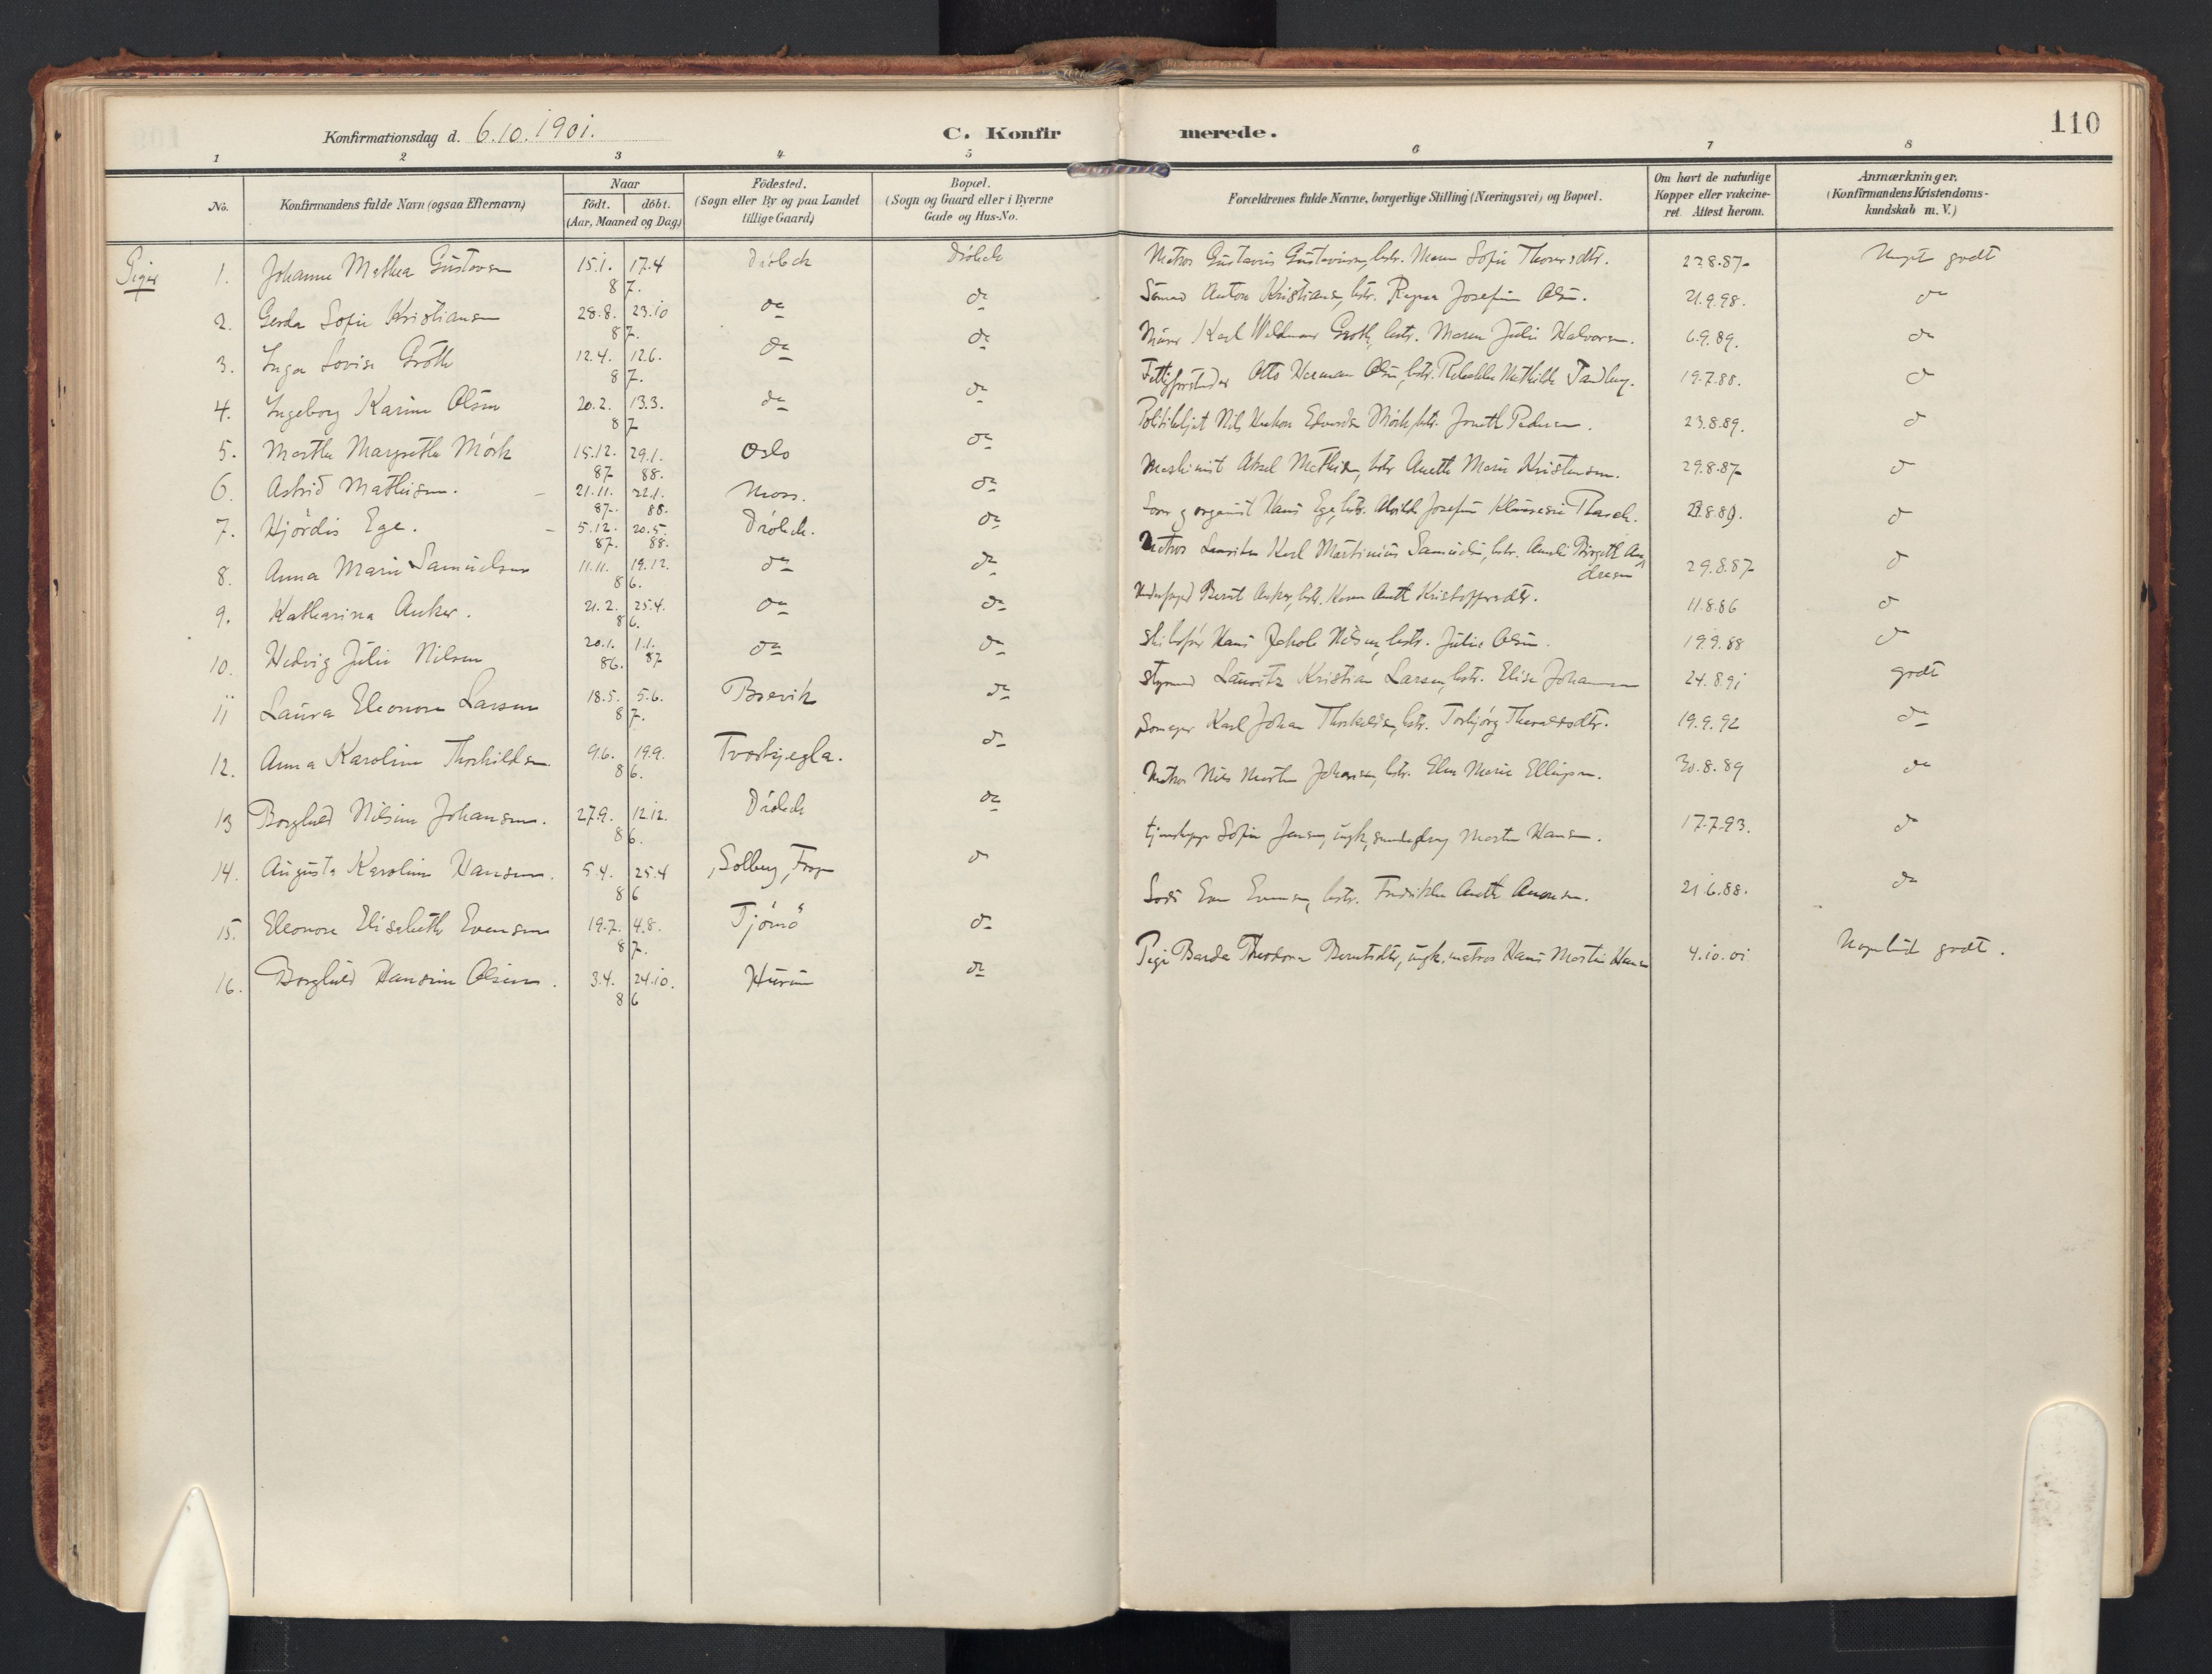 110
Konfirmationsdag d. 6.10.1901.
C. Konfirmerede.
1 2 3 4 5 6 7 8
No.
Konfirmandens fulde Navn (ogsaa Efternavn)
Naar
født. | døbt.
(Aar, Maaned og Dag)
Födested.
(Sogn eller By og paa Landet
tillige Gaard)
Bopæl.
(Sogn og Gaard eller i Byerne
Gade og Hus-No.
Forældrenes fulde Navne, borgerlige Stilling (Næringsvei) og Bopæl.
Om havt de naturlige
Kopper eller vakcine-
ret. Attest herom.
Anmærkninger.
(Konfirmandens Kristendoms-
kundskab m. V.)
Piger
1. Johanne Mathea Gustavsen 15.1. 17.4 87. Dröbak Dröbak Matros Gustavus Gustavusen, hstr. Maren Sofie 27.8.87. Meget godt
2. Gerda Sofie Kristiansen 28.8. 23.10 87. do do Sömand Anton Kristiansen, hstr. Josefine Olsen. 21.9.98. do
3. Inga Lovise Groth 12.4. 12.6. 87. do do Murer Karl Groth, hstr. Maren Julie Halvorsen. 6.9.89. do
4. Ingeborg Karine Olsen 20.2. 13.3. 87 do do Otto Herman Olsen, hstr. Mathilde Tandberg. 19.7.88. do
5. Marthe Margrethe Mörk 15.12. 87 29.1. 88. Oslo do Nils Mörk, hstr. Pedersen. 23.8.89. do
6. Astrid Mathisen. 21.11. 87. 22.1. 88. Moss. do Maskinist Aksel Mathisen, hstr. Anette Marie Kristensen. 29.8.87 do
7. Hjördis Ege. 5.12. 87. 20.5. 88. Dröbak. do organist Hans Ege, hstr. Alvilde Josefine do
8. Anna Marie Samuelsen 11.11. 19.12. 86. do do Matros Karl Martinius Samuelsen, hstr. Andresen 29.8.87 do
9. Katharina Anker. 21.2. 25.4. 86. do do Bernt Anker, hstr. Anette Kristoffersdtr. 11.8.86 do
10. Hedvig Julie Nilsen 20.1. 86. 1.1. 87 do do Hans Jakob Nilsen, hstr. Julie Olsen. 19.9.88 do
11 Laura Eleonore Larsen 18.5. 5.6. 87. Brevik do Styrmand Lauritz Kristian Larsen, hstr. Elise Johannesen 24.8.91 godt
12. Anna Karoline Thorkildsen. 9.6. 19.9. 86. do Karl Johan Thorkildsen, hstr. Torbjörg 19.9.92 do
13 Borghild Nilsine Johansen. 27.9. 12.12. 86. Dröbak do Matros Nils Martin Johansen, hstr. Marie Ellingsen. 30.8.89 do
14. Augusta Karoline Hansen. 5.4. 25.4 86 Solberg, Frogn do Sofie Jensen, ugk, Martin Hansen. 17.7.93. do
15. Eleonore Elisabeth Evensen 19.7. 4.8. 87. Tjömö do Even Evensen, hstr. Anette 21.6.88. do
16. Borghild Hansine Olsen. 3.4. 24.10. 86 Hurum do Pige Theodora Berntsdtr, ugk. matros Hans Martin Hansen 4.10.01 godt.